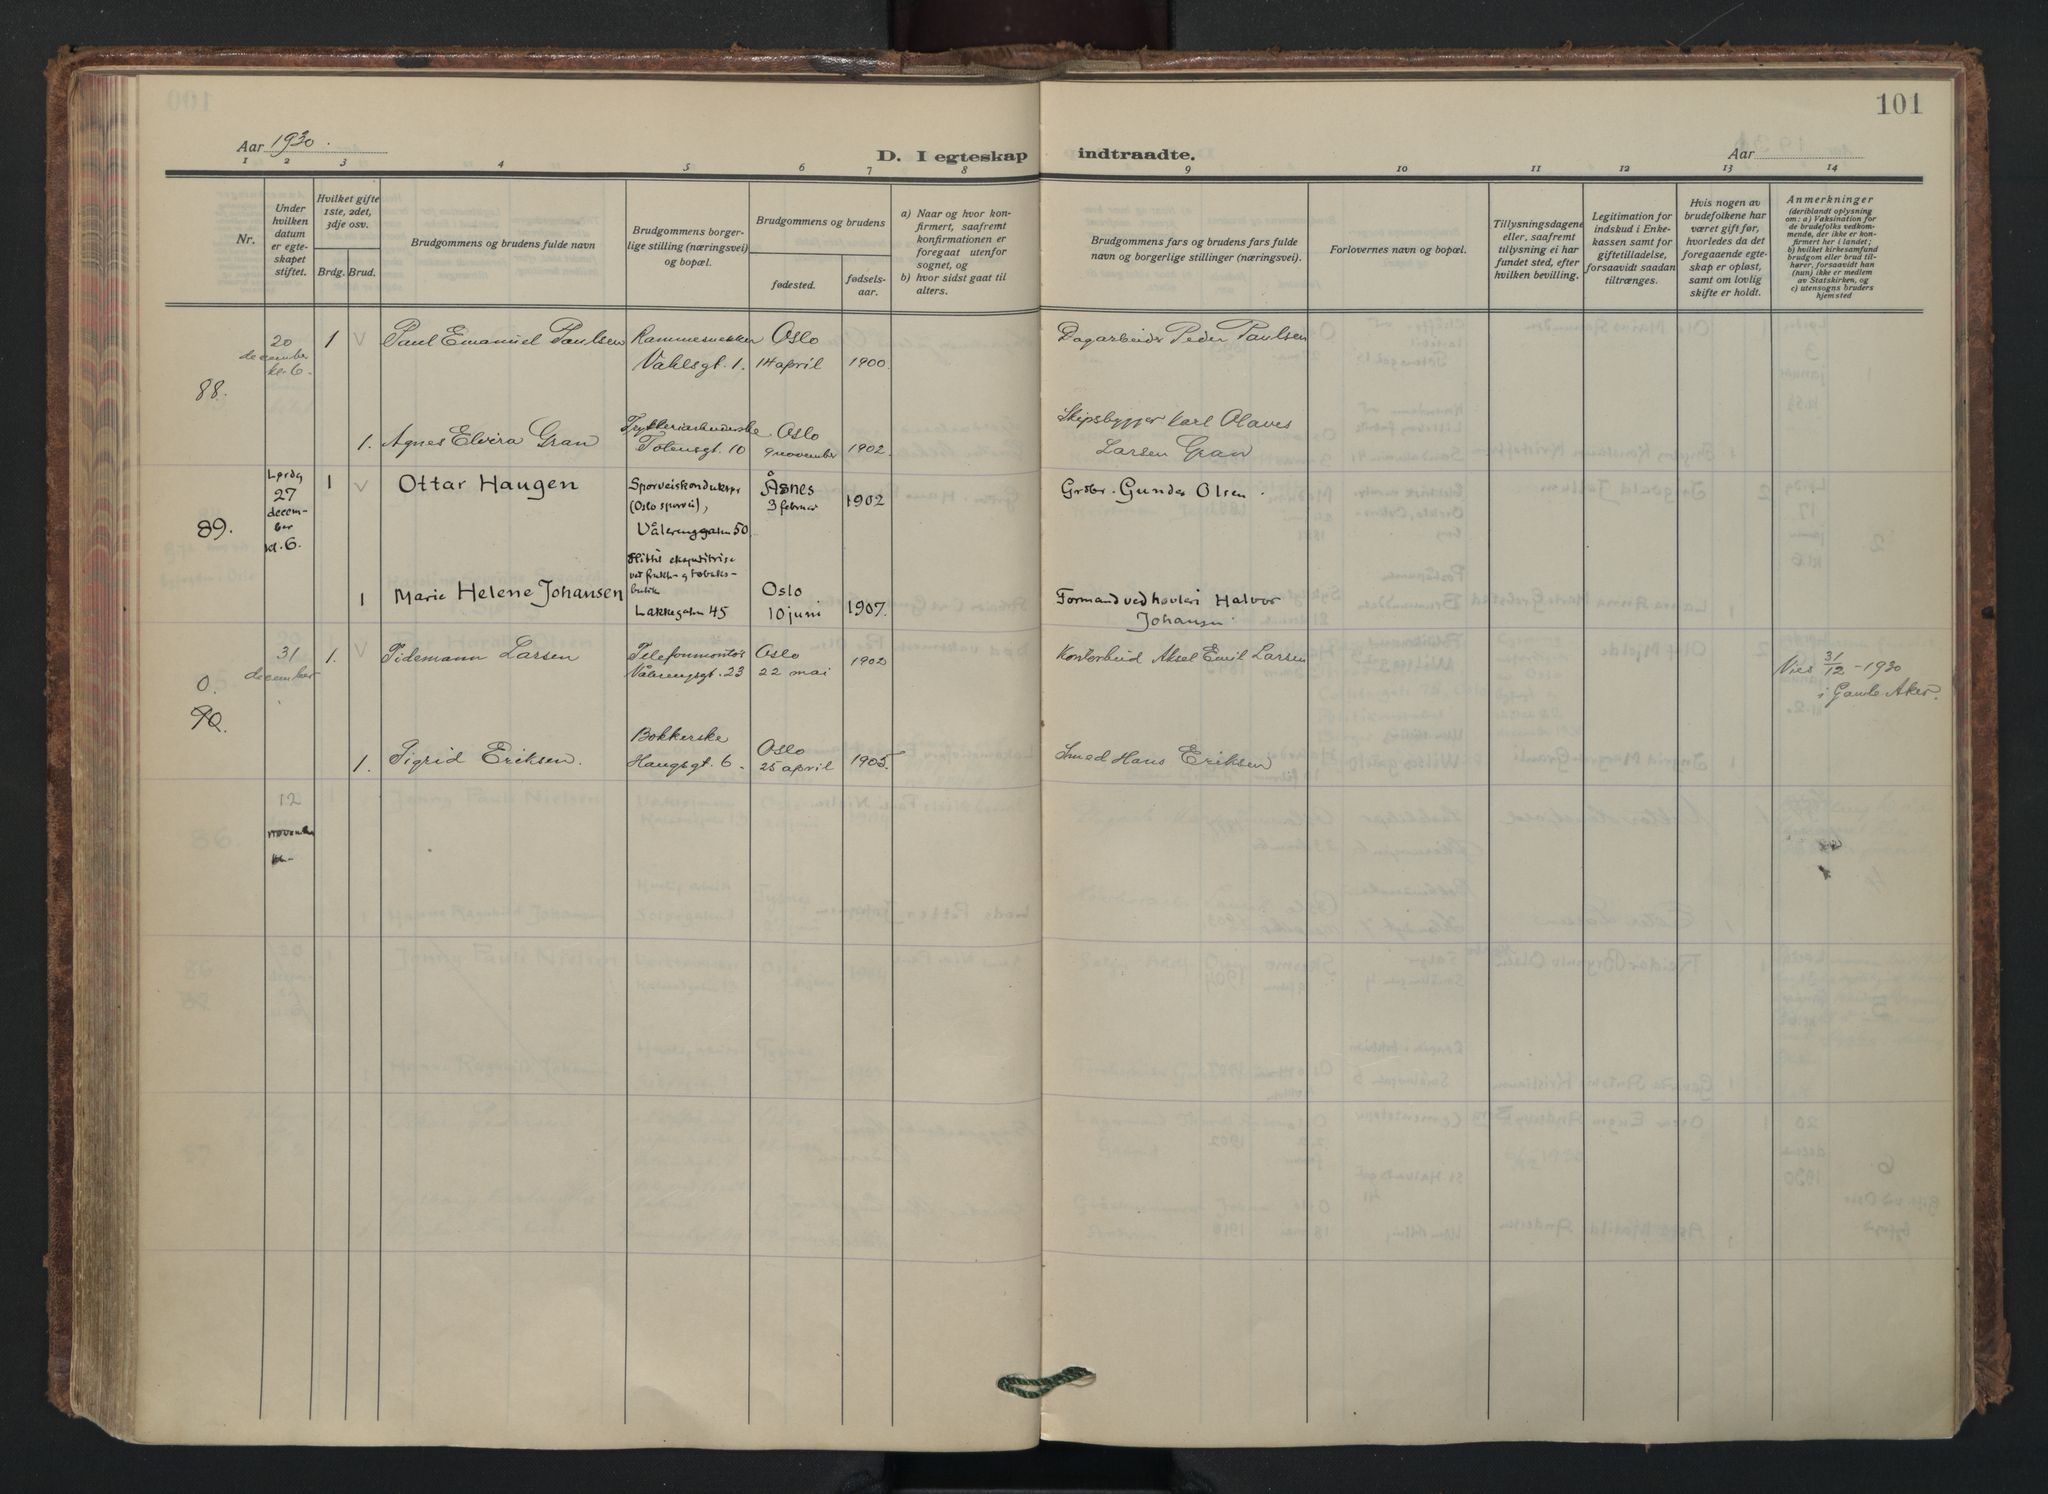 101
Aar 1930.
D. I egteskap indtraadte.
Aar
1 2 3 4 5 6 7 8 9 10 11 12 13 14
Nr.
Under hvilken datum er egteskapet stiftet.
Hvilket gifte 1ste, 2det, 3dje osv.
Brdg. Brud.
Brudgommens og brudens fulde navn
Brudgommens borgerlige stilling (næringsvei) og bopæl.
Brudgommens og brudens
fødested.
fødselsaar.
a) Naar og hvor konfirmert, saafremt konfirmationen er foregaat utenfor sognet, og
b) hvor sidst gaat til alters.
Brudgommens fars og brudens fars fulde navn og borgerlige stillinger (næringsvei).
Forlovernes navn og bopæl.
Tillysningsdagene eller, saafremt tillysning ei har fundet sted, efter hvilken bevilling.
Legitimation for indskud i Enkekassen samt for giftetilladelse, forsaavidt saadan tiltrænges.
Hvis nogen av brudefolkene har været gift før, hvorledes da det foregaaende egteskap er opløst, samt om lovlig skifte er holdt.
Anmerkninger
(deriblandt oplysning om: a) Vaksination for de brudefolks vedkommende, der ikke er konfirmert her i landet; b) hvilket kirkesamfund brudgom eller brud tilhører, forsaavidt han (hun) ikke er medlem av Statskirken, og c) utensogns bruders hjemsted
88.
20 december kl. 6.
1 Paul Emanuel Paulsen
Vahlsgt. 1.
Oslo 14 april 1900.
Dagarbeider Peder Paulsen
1. Agnes Elvira Gran
Tøiengt. 10
Oslo 9 november 1902.
Skipsbygger Karl Olaves Larsen Gran
89.
Lørdg 27 december kl. 6.
1 Ottar Haugen
Sporveiskonduktør (Oslo sporvei), Vålerenggatn 50
Åsnes 3 februar 1902
Grdbr. Gunder Olsen.
1 Marie Helene Johansen
Lakkegatn 45
Oslo 10 juni 1907.
Formand ved høvleri Halvor Johansen.
0.
90.
31 december
1. Tidemann Larsen
Telefonmontør Vålerengsgt. 23
Oslo 22 mai 1902
Kontorbud Aksel Emil Larsen
Vies 31/12 - 1930 i Gamle Aker.
1. Sigrid Eriksen.
Haugsgt. 6.
Oslo 25 april 1905.
Smed Hans Eriksen
12
november
kl.